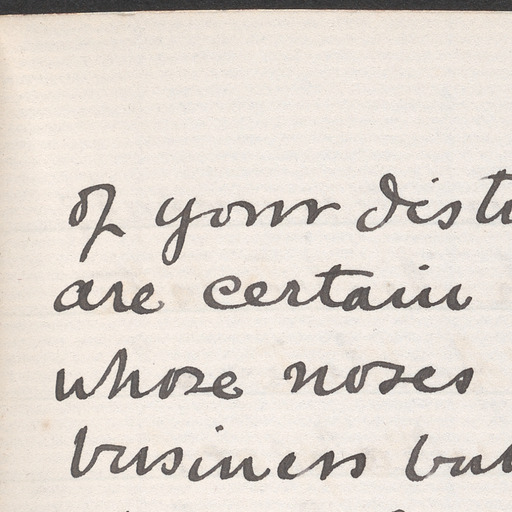 of your
are certain
whose noses
business